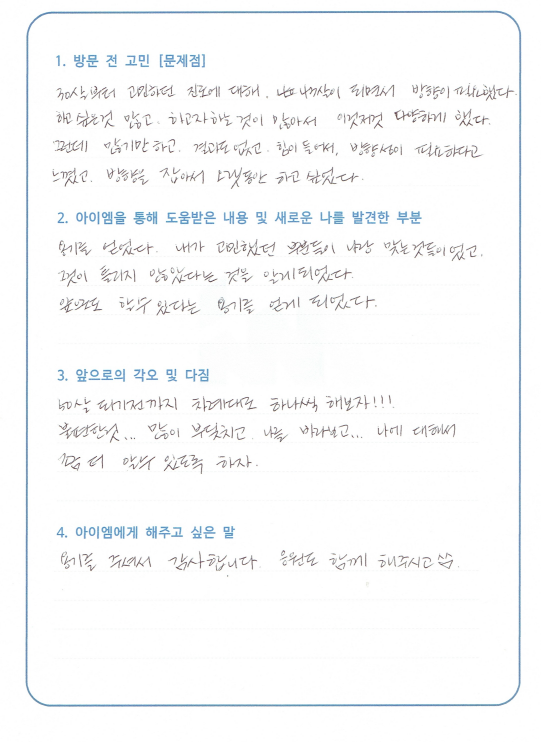 1. 방문 전 고민 [문제점]
30살부터 고민하던 진로에 대해, 나도 43살이 되면서 방향이 필요했다.
하고 싶은것 많고, 하고자 하는 것이 있어서 이것저것 다양하게 했다.
그런데 많기만 하고, 결과도 없고, 힘이 들어서, 방향성이 필요하다고
느꼈고, 방향을 잡아서 오랫동안 하고 싶었다.
2. 아이엠을 통해 도움받은 내용 및 새로운 나를 발견한 부분
용기를 얻었다. 내가 고민했던 부분들이 나랑 맞는것들이었고,
그것이 틀리지 않았다는 것을 알게되었다.
앞으로도 할수 있다는 용기를 얻게 되었다.
3. 앞으로의 각오 및 다짐
50살 되기전까지 차례대로 하나씩 해보자!!!
불편한것... 많이 부딪치고, 나를 바라보고... 나에 대해서
좀 더 알수 있도록 하자.
4. 아이엠에게 해주고 싶은 말
용기를 주셔서 감사합니다. 응원도 함께 해주시고